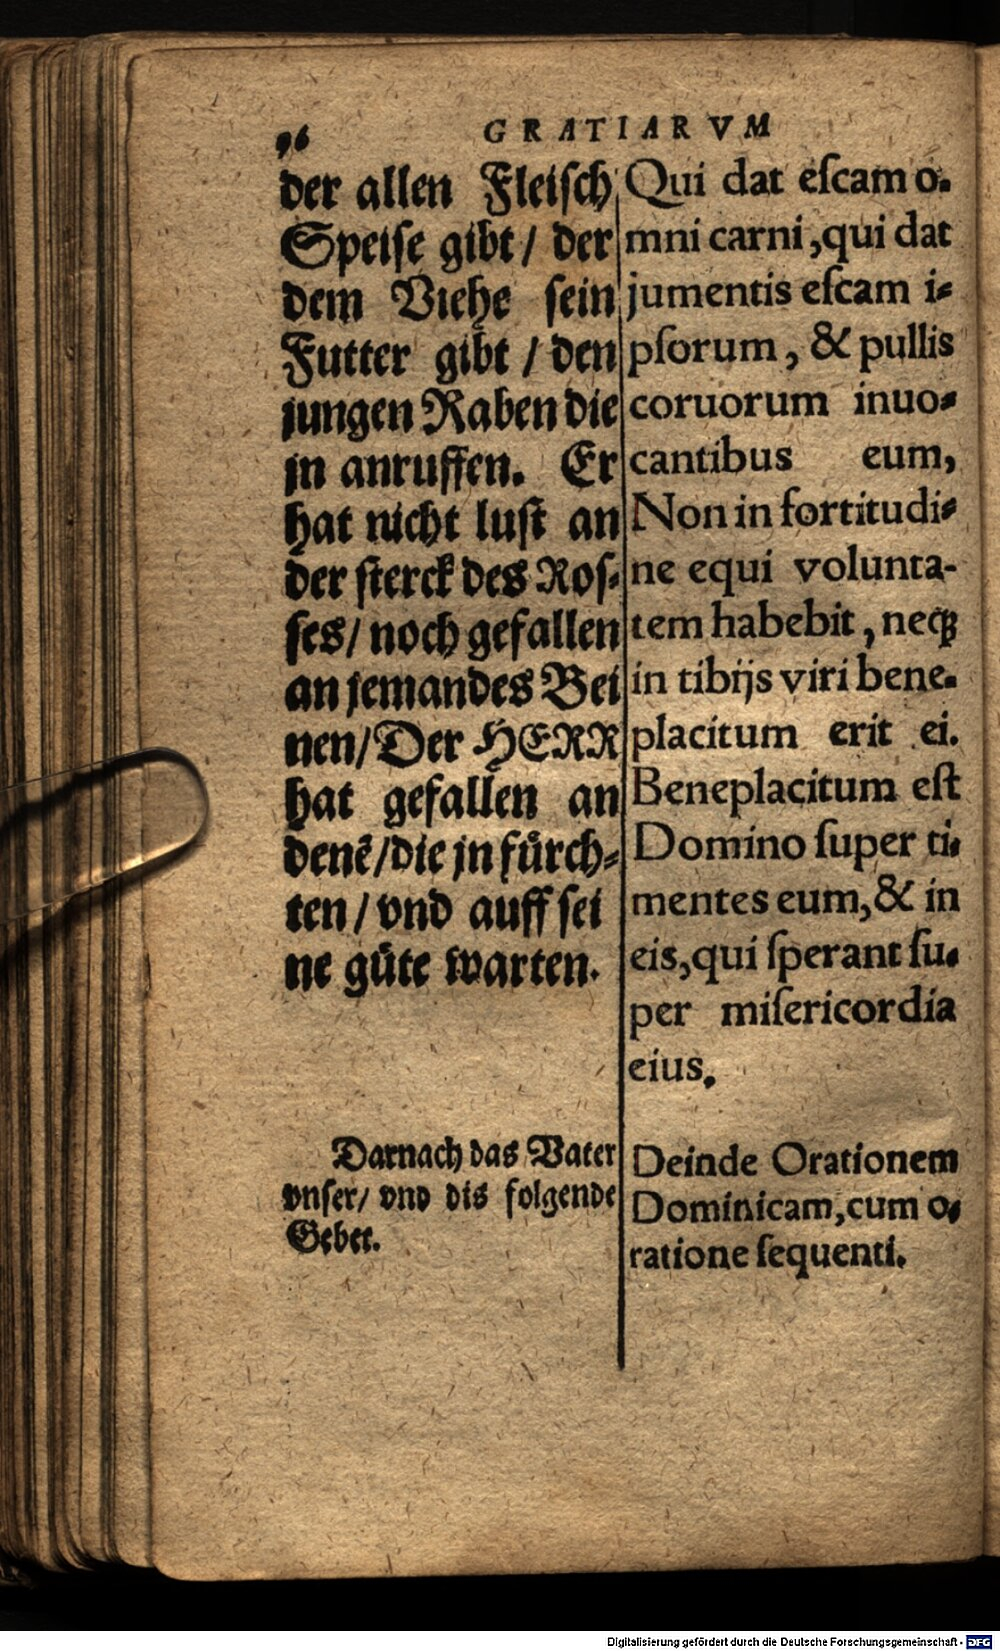 96
GRATIARVM
der allen Fleiſch
Speiſe gibt / der
dem Viehe ſein
Futter gibt / den
jungen Raben die
jn anruffen. Er
hat nicht luſt an
der ſterck des Roſ⸗
ſes / noch gefallen
an jemandes Bei
nen / Der HERR
hat gefallen an
denē / die jn fuͤrch⸗
ten / vnd auff ſei
ne guͤte warten.
Darnach das Vater
vnſer / vnd dis folgende
Gebet.
Qui dat eſcam o-
mni carni, qui dat
jumentis eſcam i-
pſorum, & pullis
coruorum inuo-
cantibus eum,
Non in fortitudi-
ne equi volunta-
tem habebit, neqꝫ
in tibijs viri bene-
placitum erit ei.
Beneplacitum eſt
Domino ſuper ti-
mentes eum, & in
eis, qui ſperant ſu-
per miſericordia
eius.
Deinde Orationem
Dominicam, cum o-
ratione ſequenti.
Digitalisierung gefördert durch die Deutsche Forschungsgemeinschaft - DFG